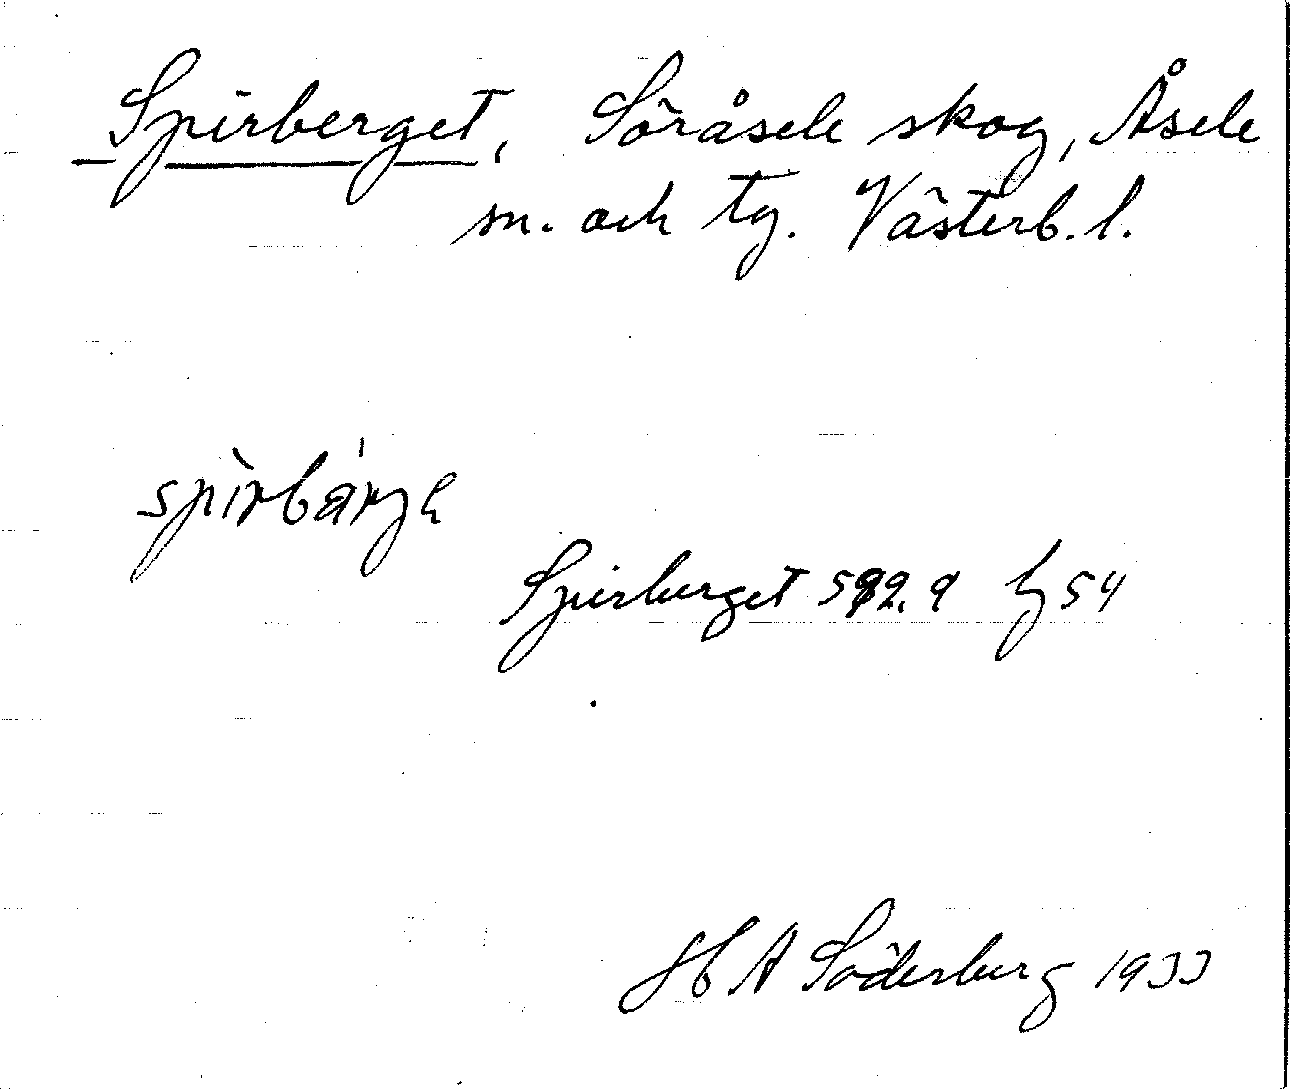 Spirberget, Söråsele skog, Åsele
sn. och tg. Västerb. l.
Spirberget
H A Söderberg 1933